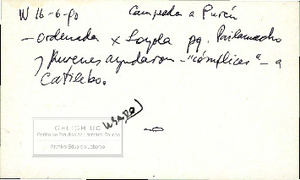 W 16-6-90 Campeda a Purén
- Ordenada x Loyola pq. Paillamacho
y Purenes ayudaron - "cómplices" - a
Catilebo.
usado
CELICH UC
Archivo Eduardo